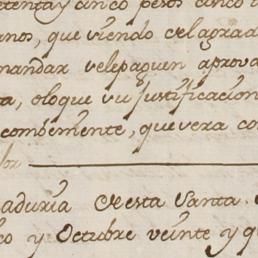 setenta y cinco pesos cinco
anos, que siendo del agrad
mandar se le paguen aprova
ta, o lo que su justificacion
combeniente, que sera co
aduria de esta Santa
co y Octubre veinte y